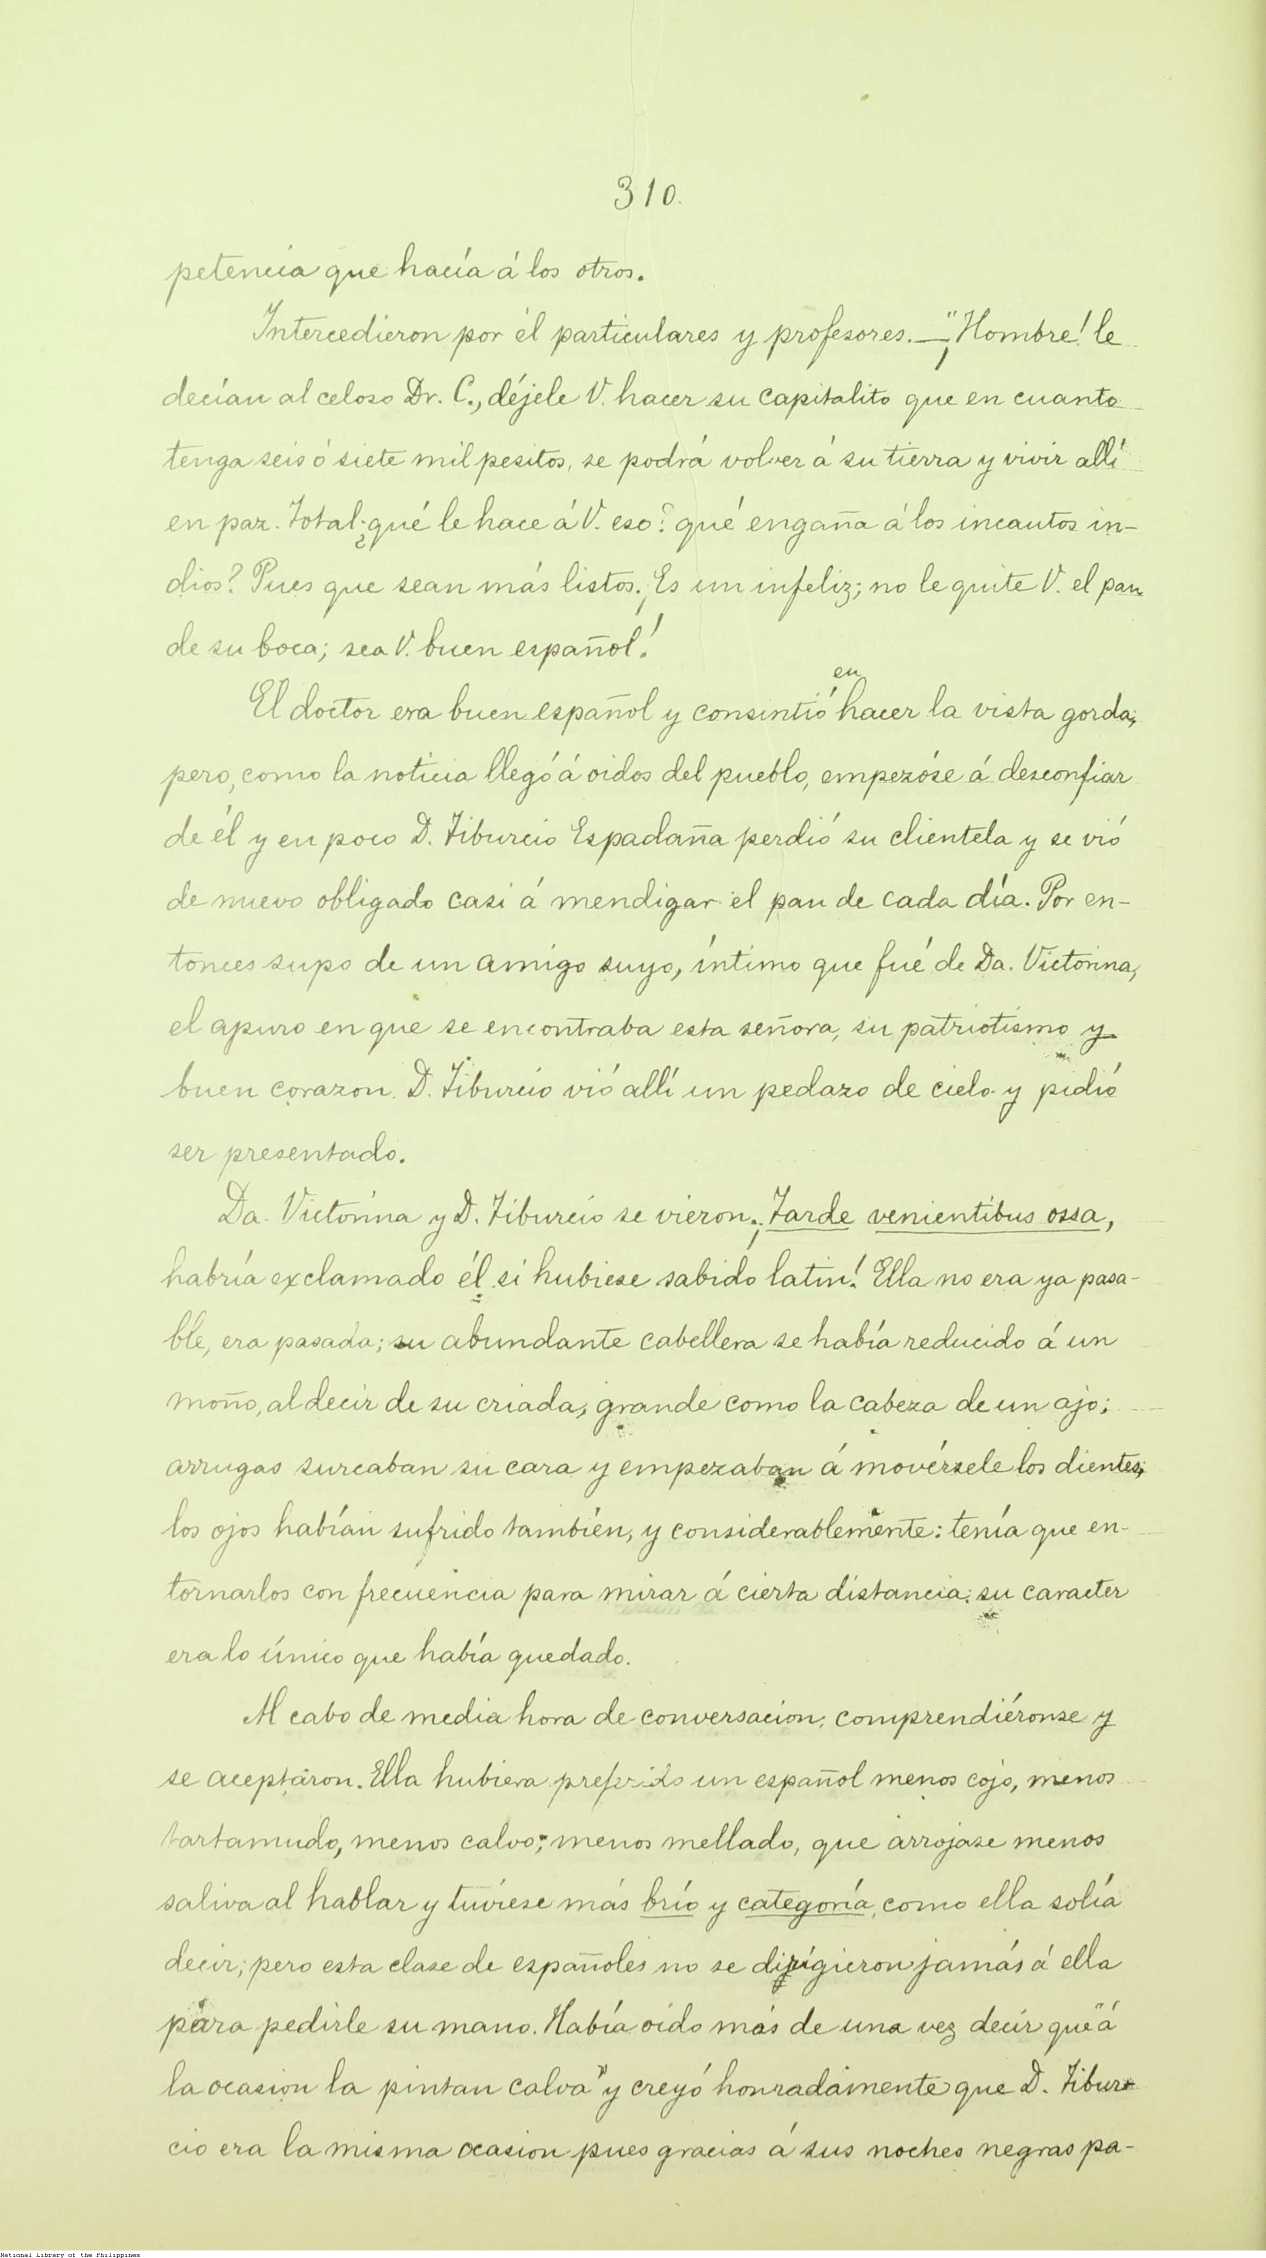 310.
petencia que hacía á los otros.
Intercedieron por él particulares y profesores.—¡"Hombre! le
decían al celoso Dr. C., déjele V. hacer su capitalito que en cuanto
tenga seis ó siete mil pesitos, se podrá volver á su tierra y vivir allí
en paz. Total ¿qué le hace á V. eso? qué engaña á los incautos in-
dios? Pues que sean más listos. ¡Es un infeliz; no le quite V. el pan
de su boca; sea V. buen español!
en
El doctor era buen español y consintió hacer la vista gorda;
pero, como la noticia llegó á oidos del pueblo, empezóse á desconfiar
de él y en poco D. Tiburcio Espadaña perdió su clientela y se vió
de nuevo obligado casi á mendigar el pan de cada día. Por en-
tonces supo de un amigo suyo, íntimo que fué de Da. Victorina,
el apuro en que se encontraba esta señora, su patriotismo y
buen corazon. D. Tiburcio vió allí un pedazo de cielo y pidió
ser presentado.
Da. Victorina y D. Tiburcio se vieron. ¡Tarde venientibus ossa,
habría exclamado él si hubiese sabido latin! Ella no era ya pasa-
ble, era pasada; su abundante cabellera se había reducido á un
moño, al decir de su criada, grande como la cabeza de un ajo;
arrugas surcaban su cara y empezaban á movérsele los dientes;
los ojos habían sufrido también, y considerablemente: tenía que en-
tornarlos con frecuencia para mirar á cierta distancia; su caracter
era lo único que había quedado.
Al cabo de media hora de conversacion, comprendiéronse y
se aceptaron. Ella hubiera preferido un español menos cojo, menos
tartamudo, menos calvo, menos mellado, que arrojase menos
saliva al hablar y tuviese más brío y categoría, como ella solía
decir; pero esta clase de españoles no se dirigieron jamás á ella
para pedirle su mano. Había oido más de una vez decir que "á
la ocasion la pintan calva" y creyó honradamente que D. Tibur-
cio era la misma ocasion pues gracias á sus noches negras pa-
National Library of the Philippines